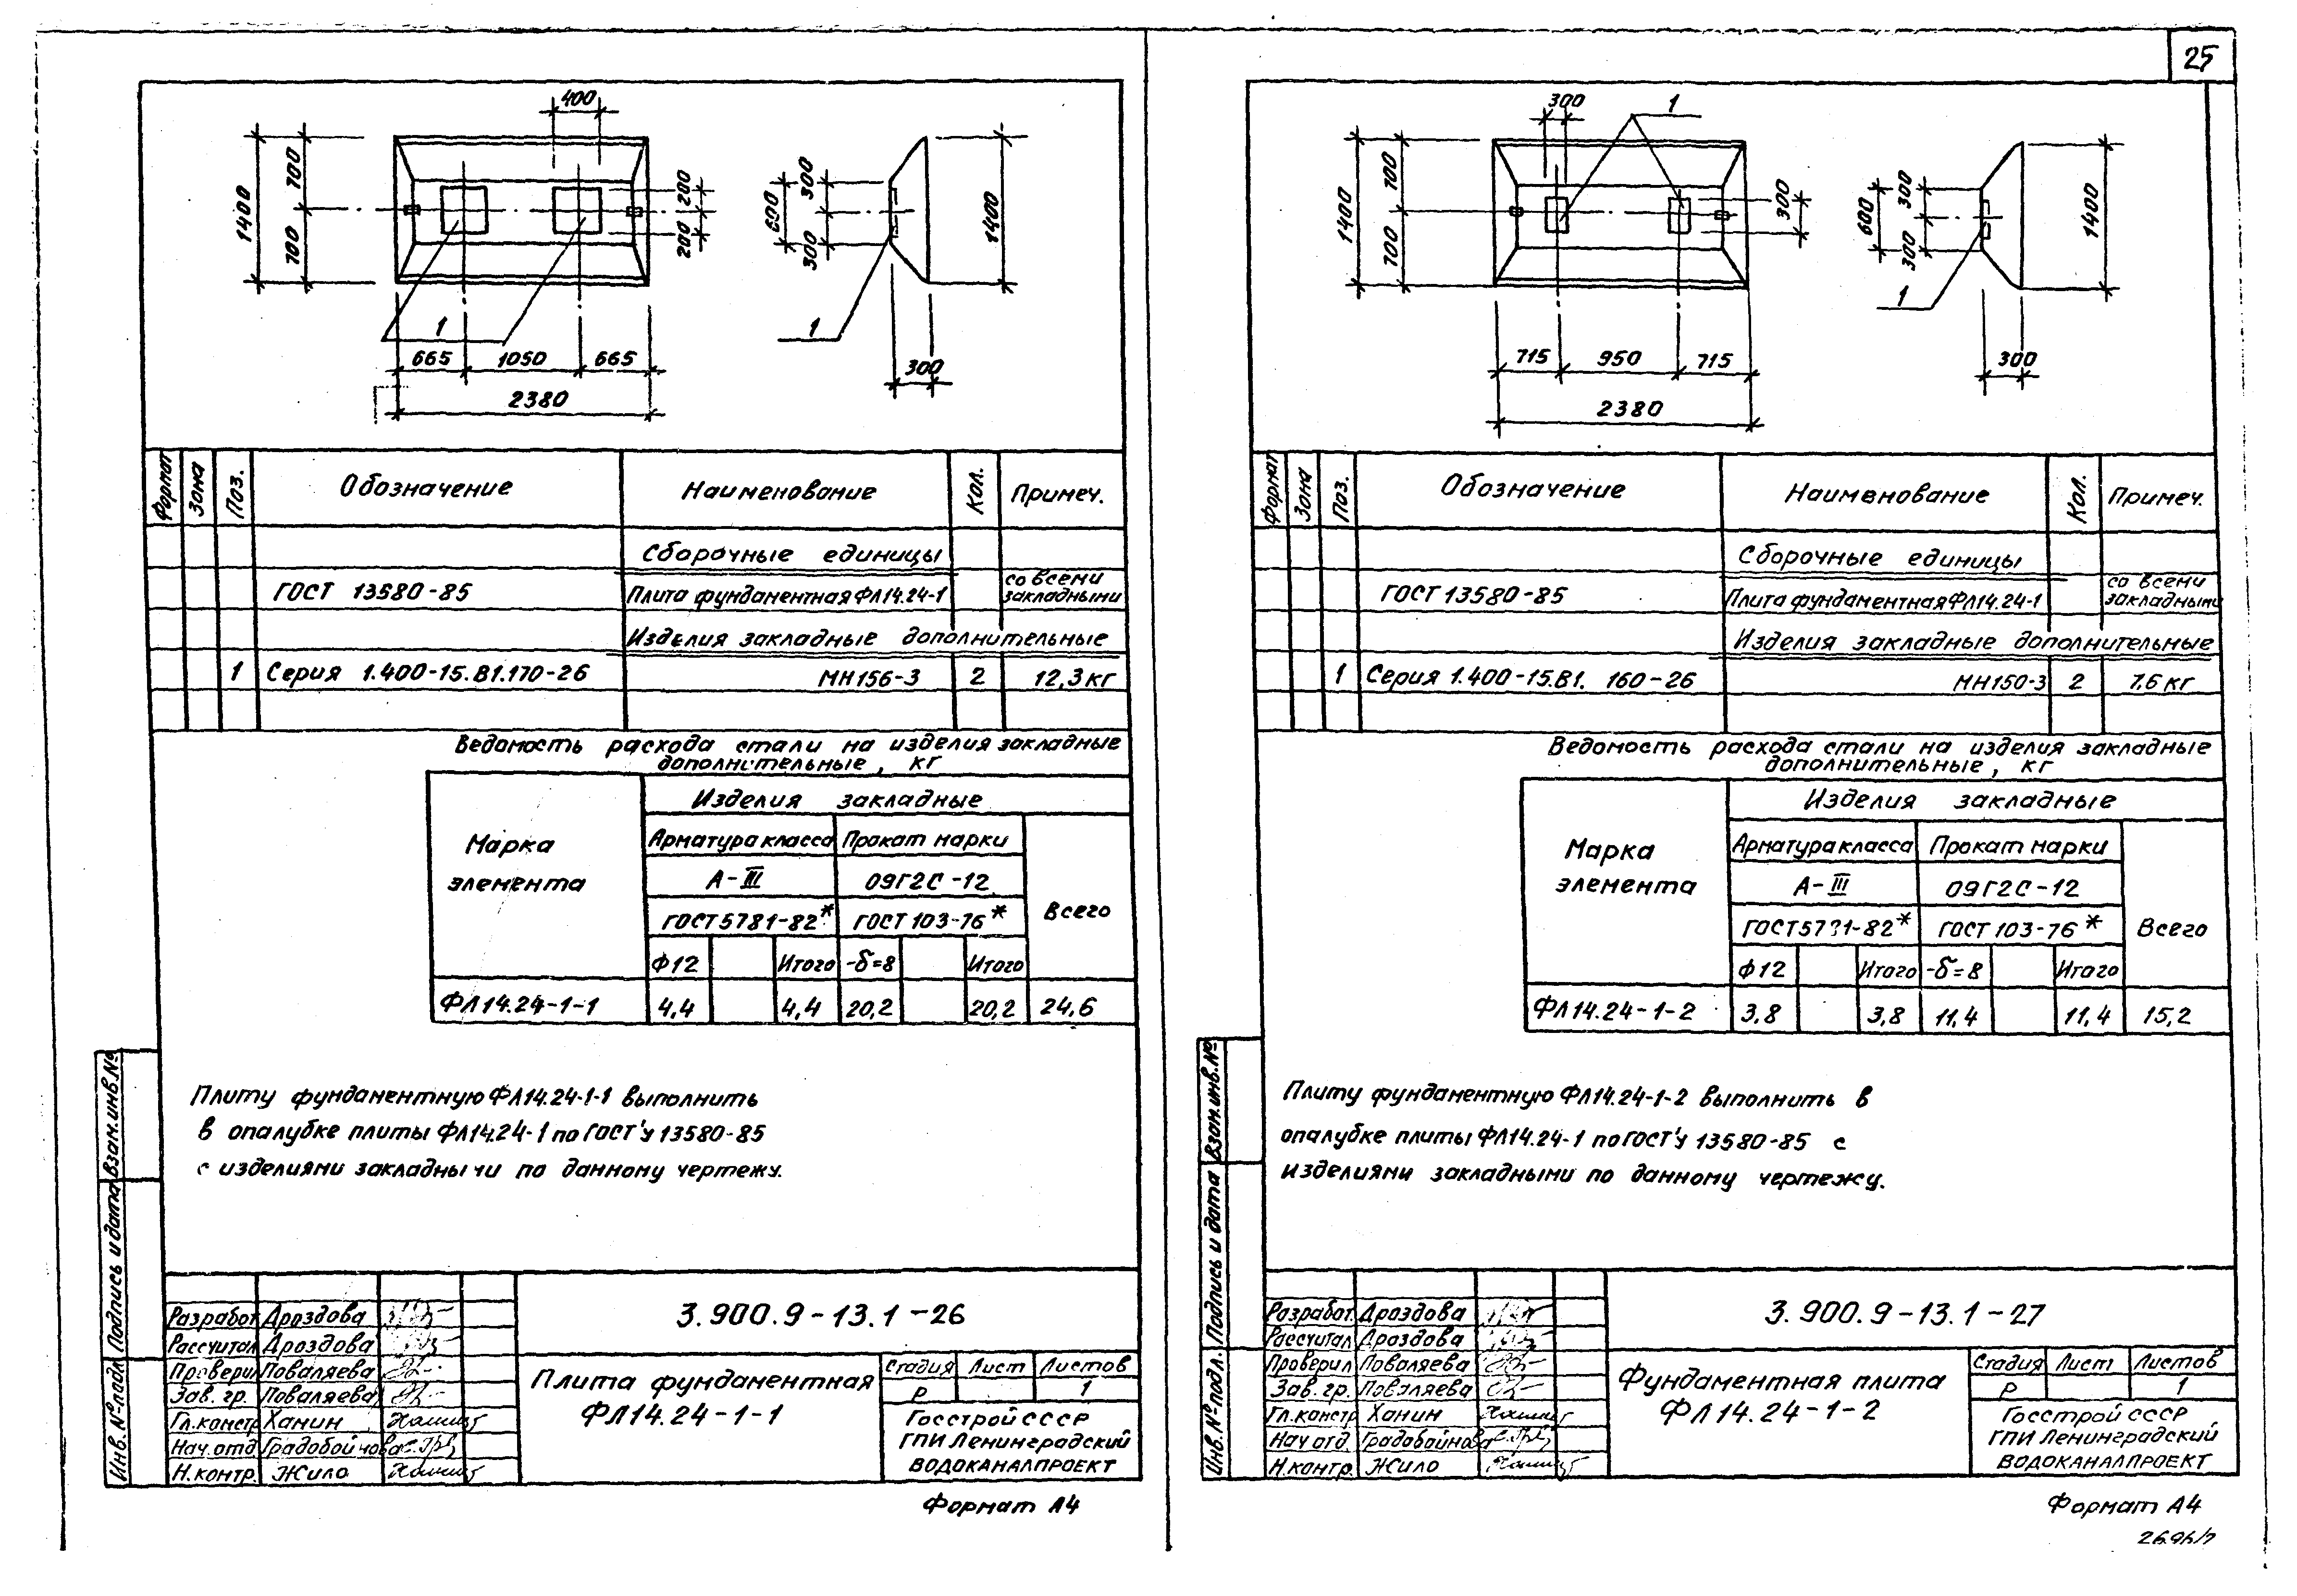 25
400
1400
700
700
200
200
600
300
300
1400
1
1
665
1050
665
2380
300
Формат
Зона
Поз.
Обозначение
Наименование
Кол.
Примеч.
Сборочные единицы
ГОСТ 13580-85
Плита фундаментная ФЛ14.24-1
со всеми
закладными
Изделия закладные дополнительные
1
Серия 1.400-15.В1.170-26
МН156-3
2
12,3 кг
Ведомость расхода стали на изделия закладные
дополнительные, кг
Марка
элемента
Изделия закладные
Арматура класса
Прокат марки
А-III
09Г2С-12
ГОСТ 5781-82*
ГОСТ 103-76*
Всего
Ф12
Итого
-δ=8
Итого
ФЛ14.24-1-1
4,4
4,4
20,2
20,2
24,6
Плиту фундаментную ФЛ14.24-1-1 выполнить
в опалубке плиты ФЛ14.24-1 по ГОСТ'у 13580-85
с изделиями закладны чи по данному чертежу.
Взам.инв.№
Подпись и дата
Инв.№подл.
Разработ. Дроздова
Рассчитал Дроздова
Проверил Поваляева
Зав. гр. Поваляева
Гл.констр Ханин
Нач.отд Градобойнова
Н.контр. Жило
3.900.9-13.1-26
Плита фундаментная
ФЛ14.24-1-1
Стадия Лист Листов
Р 1
Госстрой СССР
ГПИ Ленинградский
ВОДОКАНАЛПРОЕКТ
Формат А4
300
1
1400
700
700
300
600
300
300
1400
1
715
950
715
2380
300
Формат
Зона
Поз.
Обозначение
Наименование
Кол.
Примеч.
Сборочные единицы
ГОСТ 13580-85
Плита фундаментная ФЛ14.24-1
со всеми
закладными
Изделия закладные дополнительные
1
Серия 1.400-15.В1. 160-26
МН150-3
2
7,6 кг
Ведомость расхода стали на изделия закладные
дополнительные, кг
Марка
элемента
Изделия закладные
Арматура класса
Прокат марки
А-III
09Г2С-12
ГОСТ 5781-82*
ГОСТ 103-76*
Всего
Ф12
Итого
-δ=8
Итого
ФЛ14.24-1-2
3,8
3,8
11,4
11,4
15,2
Плиту фундаментную ФЛ14.24-1-2 выполнить в
опалубке плиты ФЛ14.24-1 по ГОСТ'у 13580-85 с
изделиями закладными по данному чертежу.
Взам.инв.№
Подпись и дата
Инв.№подл.
Разработ. Дроздова
Рассчитал Дроздова
Проверил Поваляева
Зав. гр. Поваляева
Гл.констр Ханин
Нач отд Градобойнова
Н.контр. Жило
3.900.9-13.1-27
Фундаментная плита
ФЛ14.24-1-2
Стадия Лист Листов
Р 1
Госстрой СССР
ГПИ Ленинградский
ВОДОКАНАЛПРОЕКТ
Формат А4